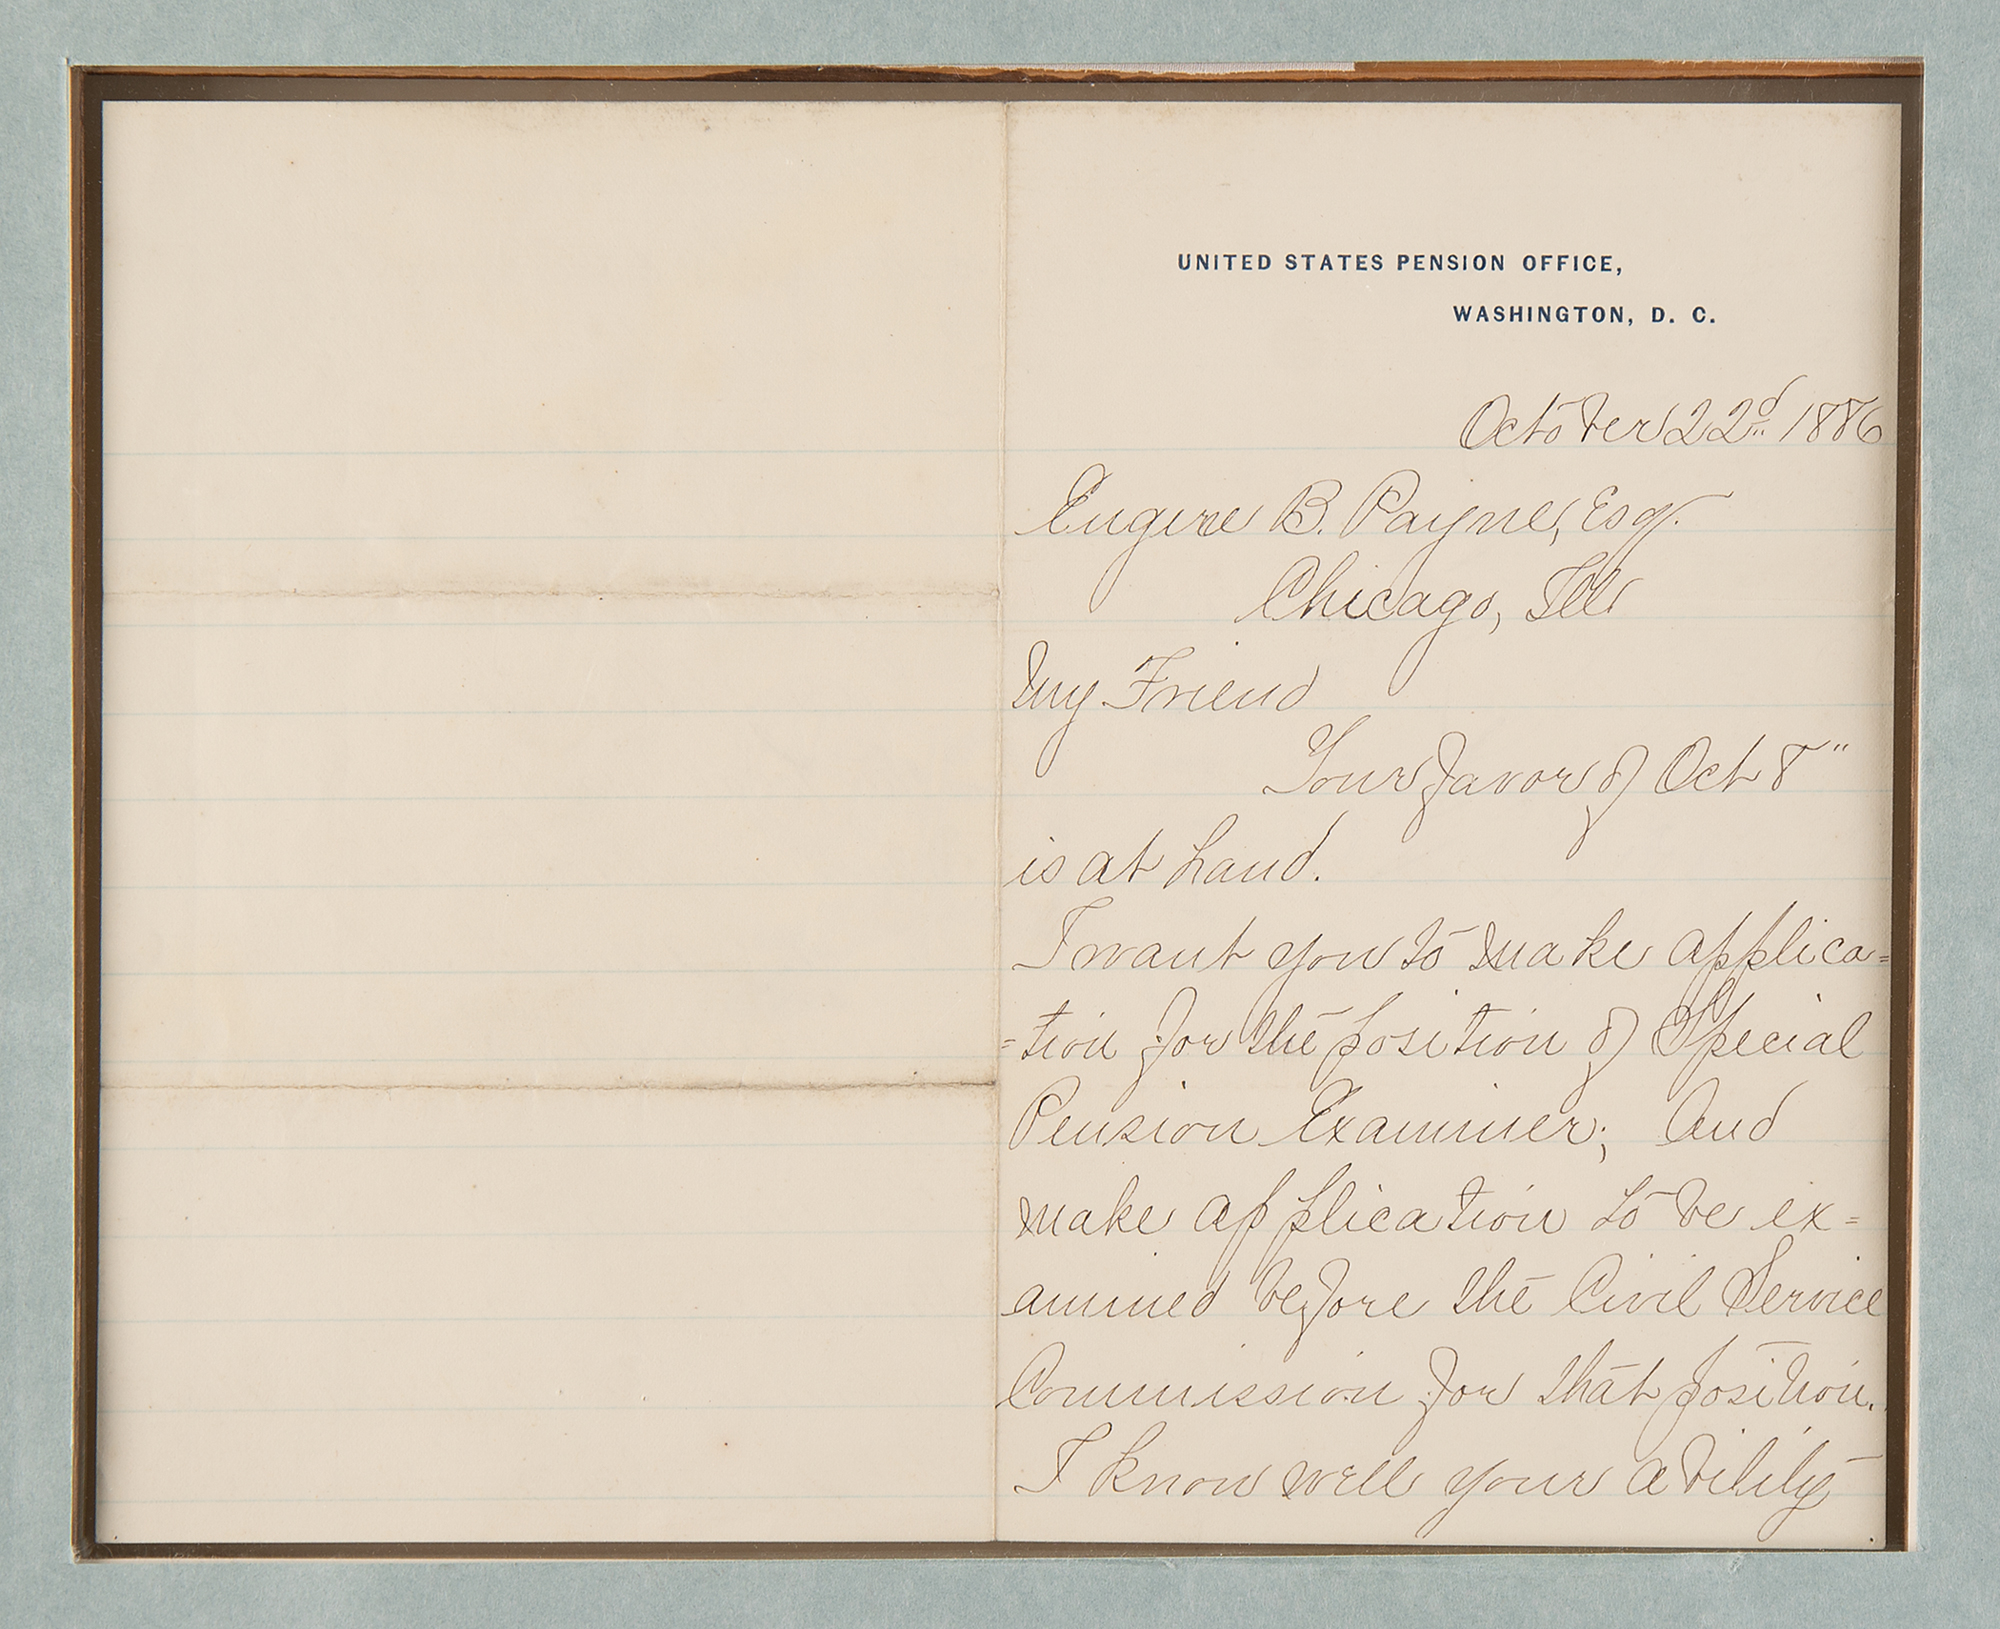 UNITED STATES PENSION OFFICE,
WASHINGTON, D. C.
October 22d 1886
Eugene B. Payne, Esq.
Chicago, Ill
My Friend
Your favor of Oct 8"
is at hand.
I want you to make applica=
=tion for the position of Special
Pension Examiner; And
make application to be ex=
amined before the Civil Service
Commission for that position.
I know well your ability